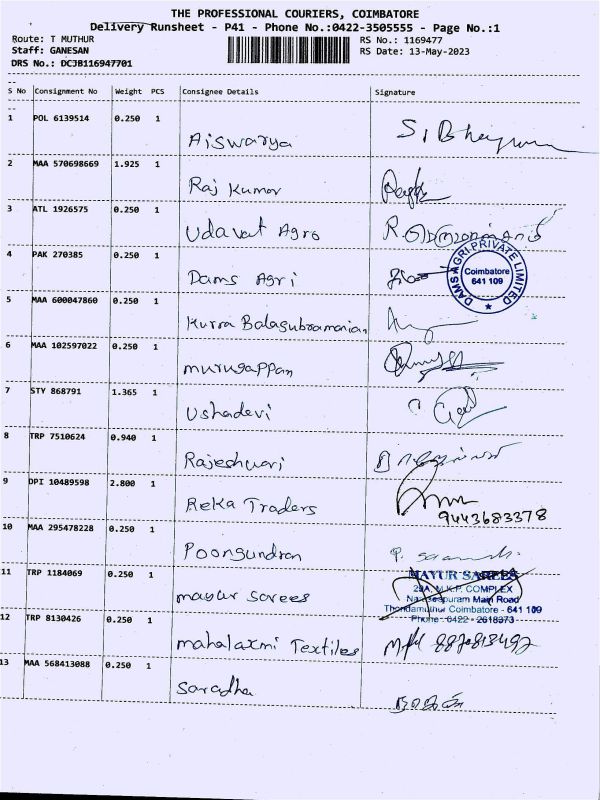 THE PROFESSIONAL COURIERS, COIMBATORE
Delivery Runsheet - P41 - Phone No.:0422-3505555 - Page No.:1
Route: T MUTHUR RS No.: 1169477
Staff: GANESAN RS Date: 13-May-2023
DRS No.: DCJB116947701
S No Consignment No Weight PCS Consignee Details Signature
1 POL 6139514 0.250 1 Aiswarya
2 MAA 570698669 1.925 1 Raj Kumar
3 ATL 1926575 0.250 1 Udavat Agro
4 PAK 270385 0.250 1 Dams Agri
DAMS AGRI PRIVATE LIMITED
Coimbatore
641 109
5 MAA 600047860 0.250 1 Kurra Balasubramanian
6 MAA 102597022 0.250 1 murugappan
7 STY 868791 1.365 1 Ushadevi
8 TRP 7510624 0.940 1 Rajeshwari
9 DPI 10489598 2.800 1 Reka Traders
9443683378
10 MAA 295478228 0.250 1 Poongundran
11 TRP 1184069 0.250 1 mayur sarees
MAYUR SAREES
29A, M.K.P. COMPLEX
Main Road
Thondamuthur Coimbatore - 641 109
Phone : 0422 - 2618373
12 TRP 8130426 0.250 1 mahalaxmi Textiles
13 MAA 568413088 0.250 1 Saradha